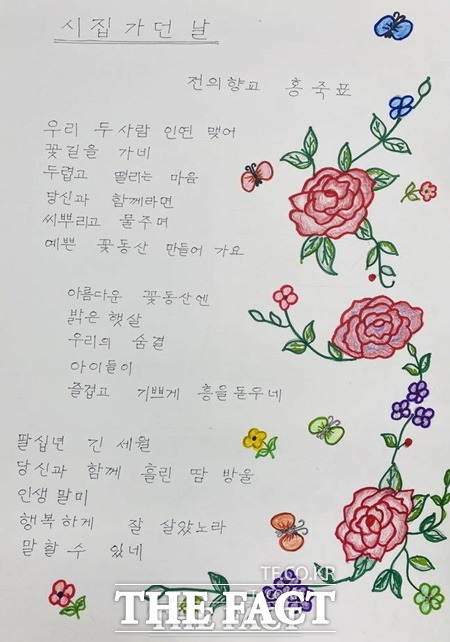 시집 가던 날
전의향교 홍죽표
우리 두사람 인연 맺어
꽃길을 가네
두렵고 떨리는 마음
당신과 함께라면
씨뿌리고 물주며
예쁜 꽃동산 만들어 가요
아름다운 꽃동산엔
밝은 햇살
우리의 숨결
아이들이
즐겁고 기쁘게 흥을 돋우네
팔십년 긴 세월
당신과 함께 흘린 땀 방울
인생 말미
행복하게 잘 살았노라
말 할 수 있네
TF.CO.KR
THE FACT